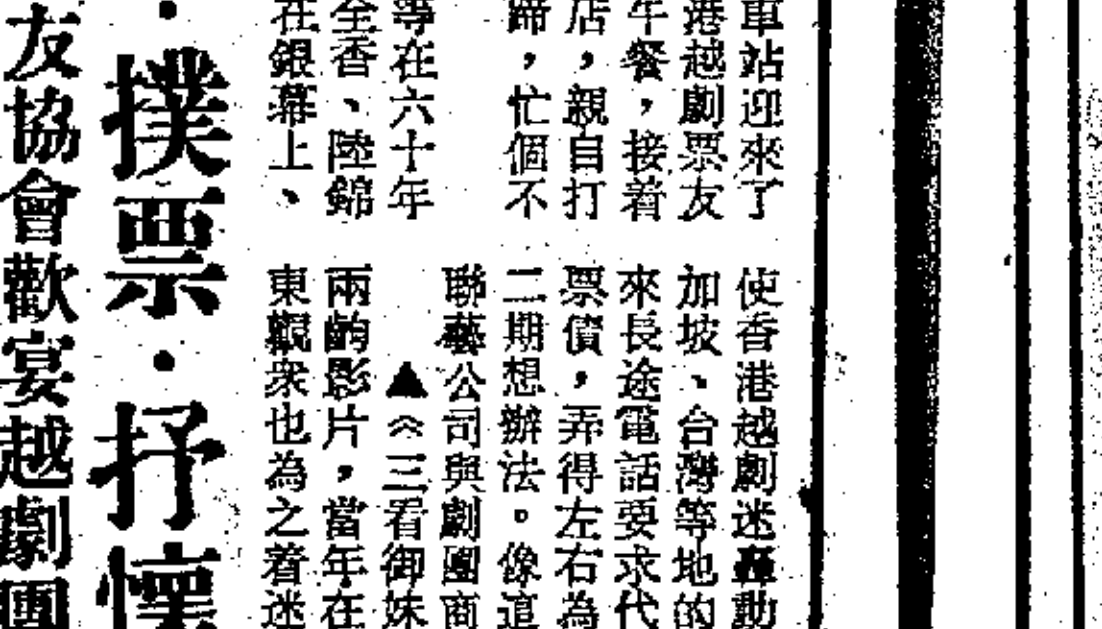 車站迎來了
港越劇票友
午餐，接着
店，親自打
蹄，忙個不
等在六十年
全香、陸錦
在銀幕上、
使香港越劇迷轟動
加坡、台灣等地的
來長途電話要求代
票債，弄得左右為
二期想辦法。像這
聯藝公司與劇團商
▲《三看御妹
兩齣影片，當年在
東觀衆也為之着迷
·撲票·抒懷
友協會歡宴越劇團